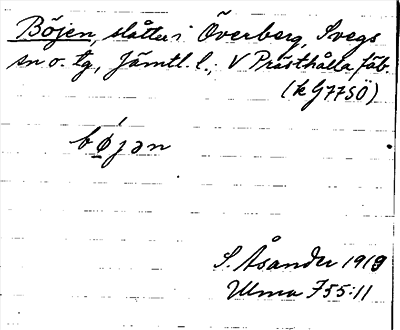 Böjen, slåtter i Överberg, Svegs
sn o. tg, Jämtl. l.; V Prästhålla fäb.
(k G77SÖ)
bǿjən
S. Åsander 1919
Ulma 755:11